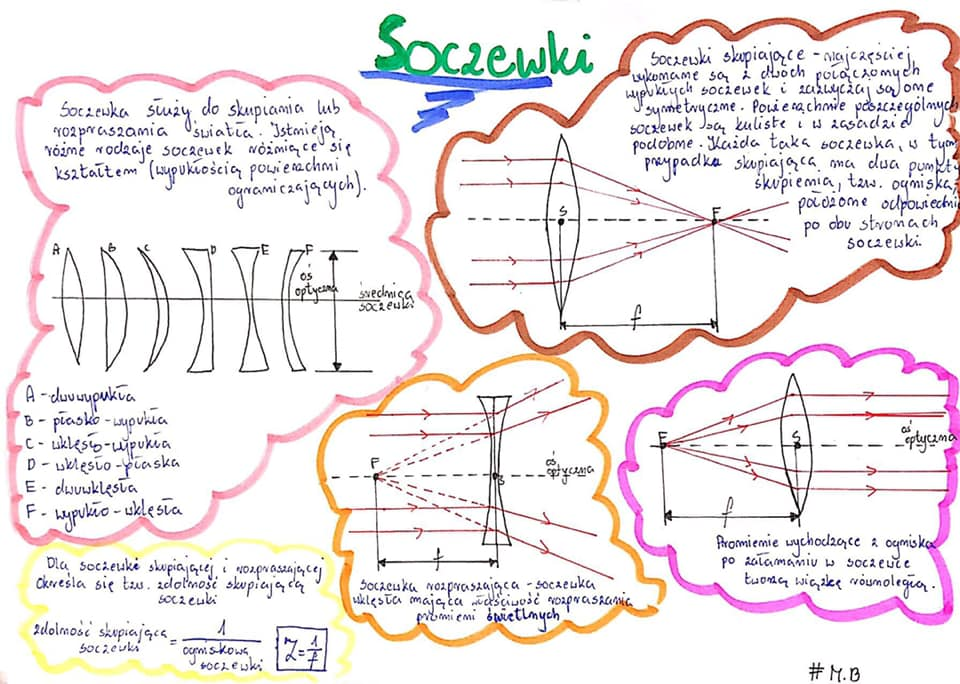 Soczewki
Soczewka służy do skupiania lub
rozpraszania światła. Istnieją
różne rodzaje soczewek różniące się
kształtem (wypukłością powierzchni
ograniczających).
A B C D E F
oś
optyczna
średnica
soczewki
A - dwuwypukła
B - płasko-wypukła
C - wklęsło-wypukła
D - wklęsło-płaska
E - dwuwklęsła
F - wypukło-wklęsła
Soczewki skupiające - najczęściej
wykonane są z dwóch połączonych
wypukłych soczewek i zazwyczaj są one
symetryczne. Powierzchnie poszczególnych
soczewek są kuliste i w zasadzie
podobne. Każda taka soczewka, w tym
przypadku skupiająca ma dwa punkty
skupienia, tzw. ogniska,
położone odpowiednio
po obu stronach
soczewki.
S
F
f
F
S
oś
optyczna
f
Soczewka rozpraszająca - soczewka
wklęsła mająca właściwość rozpraszania
promieni świetlnych
F
S
oś
optyczna
f
Promienie wychodzące z ogniska
po załamaniu w soczewce
tworzą wiązkę równoległą.
Dla soczewki skupiającej i rozpraszającej
określa się tzw. zdolność skupiającą
soczewki
zdolność skupiająca
soczewki
=
1
ogniskowa
soczewki
Z = 1/f
# M.B